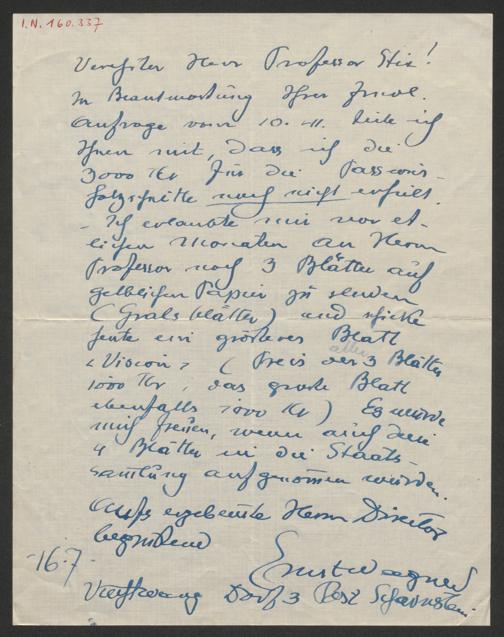 I.N. 160.337
Verehrter Herr Professor Stix!
In Beantwortung Ihrer frndl.
Anfrage vom 10. II. teile ich
Ihnen mit, dass ich die
3000 Kr für die Passions-
holzschnitte noch nicht erhielt.
- Ich erlaubte mir vor et-
lichen Monaten an Herrn
Professor noch 3 Blätter auf
gelblichen Papier zu senden
(Gralsblätter) und schicke
heute ein grösseres Blatt
"Vision" (Preis der 3 Blätter
aller
1000 Kr, das große Blatt
ebenfalls 1000 Kr) Es würde
mich freuen, wenn auch diese
4 Blätter in die Staats-
samlung aufgenomen würden.
Aufs ergebenste Herrn Direktor
begrüßend
Ernst Wagner
-16.7.
Viechtwang Dorf 3 Post Scharnstein.